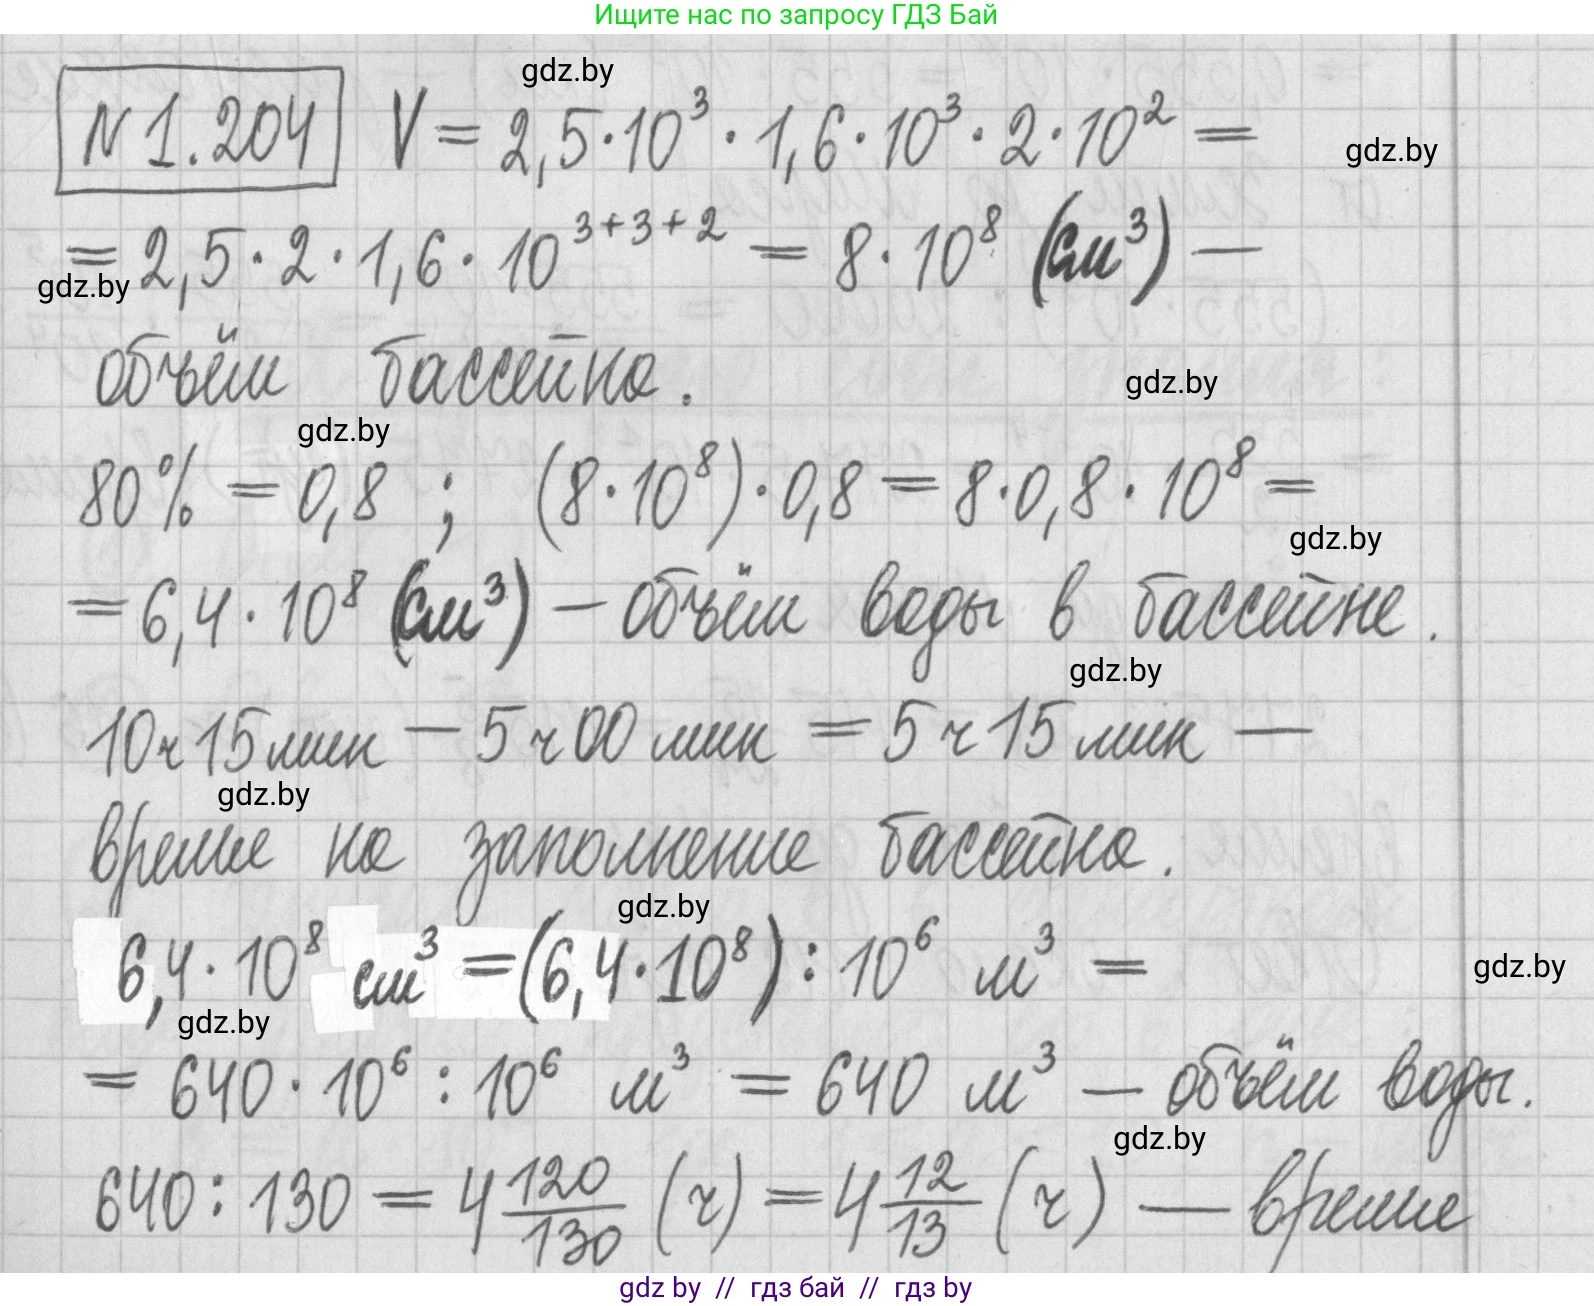 Ищите нас по запросу ГДЗ Бай
gdz.by
N1.204 V = 2,5·10³ · 1,6·10³ · 2·10² =
gdz.by
= 2,5 · 2 · 1,6 · 10³⁺³⁺² = 8·10⁸ (см³) —
gdz.by
объём бассейна.
gdz.by
gdz.by
80% = 0,8 ; (8·10⁸)·0,8 = 8·0,8·10⁸ =
gdz.by
= 6,4·10⁸ (см³) — объём воды в бассейне.
gdz.by
10ч15мин — 5ч00мин = 5ч15мин —
gdz.by
время на заполнение бассейна.
gdz.by
6,4·10⁸ см³ = (6,4·10⁸) : 10⁶ м³ =
gdz.by
gdz.by
= 640·10⁶ : 10⁶ м³ = 640 м³ — объём воды.
gdz.by
640 : 130 = 4 120/130 (ч) = 4 12/13 (ч) — время
gdz by // гдз бай // гдз by